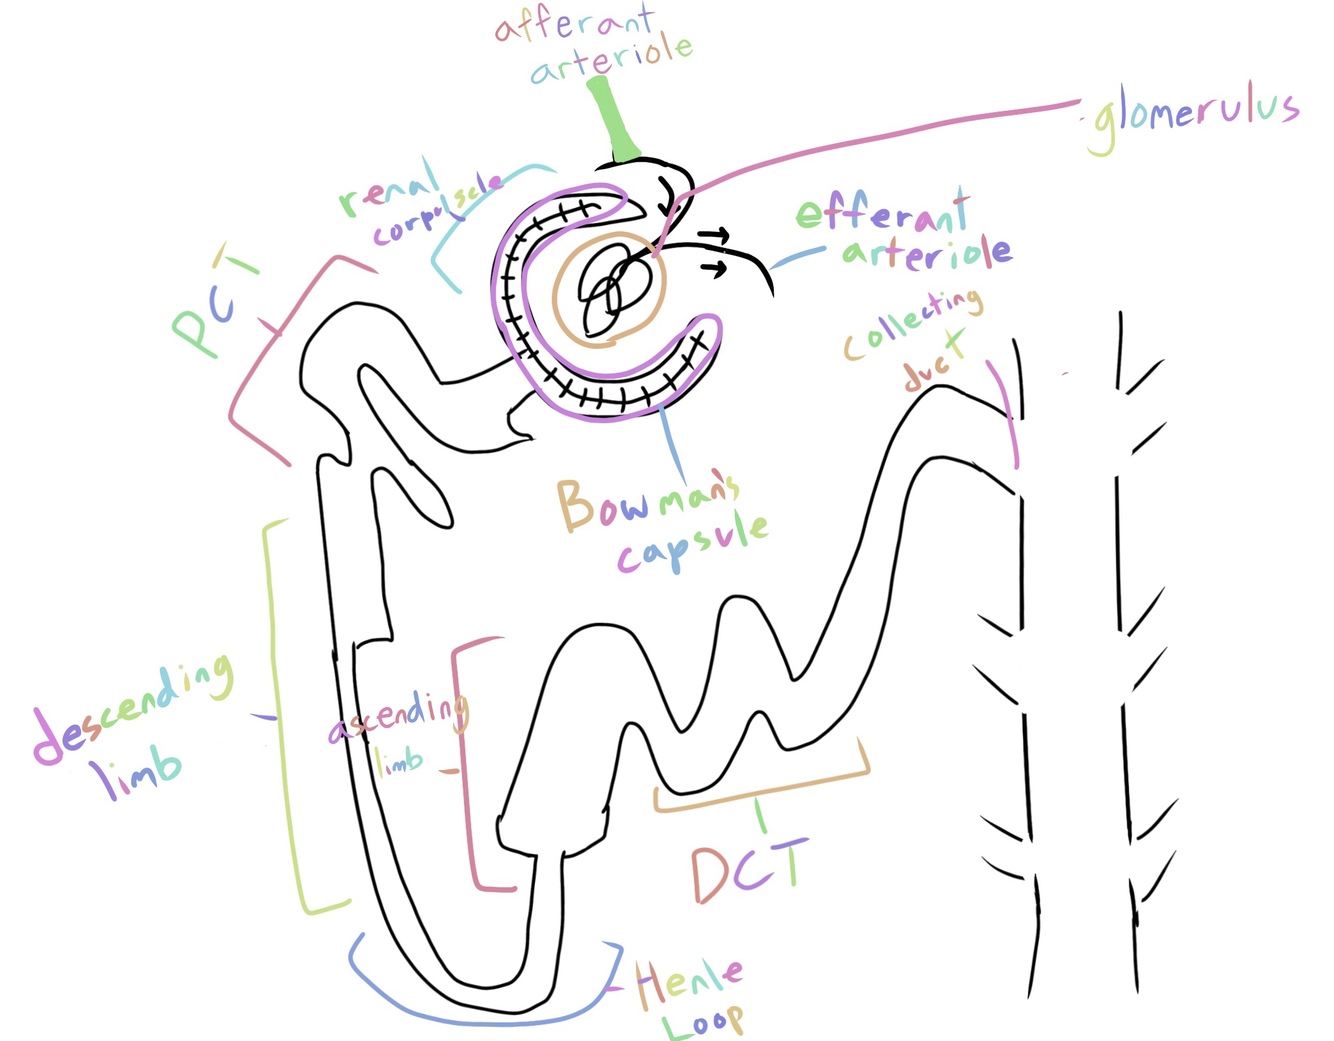 afferant
arteriole
glomerulus
renal
corpuscle
efferant
arteriole
PCT
collecting
duct
Bowman's
capsule
descending
limb
ascending
limb
DCT
Henle
Loop